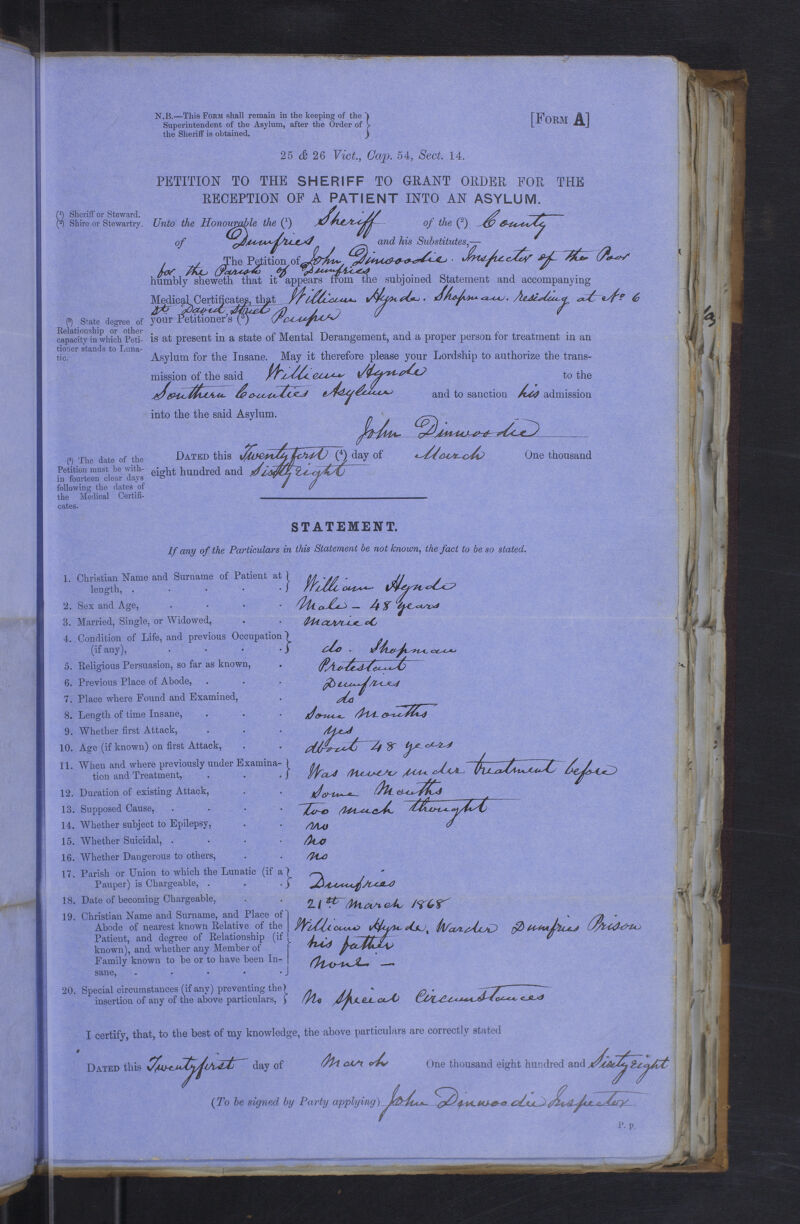 N.B.—This Form shall remain in the keeping of the
Superintendent of the Asylum, after the Order of
the Sheriff is obtained.
[Form A]
25 & 26 Vict., Cap. 54, Sect. 14.
PETITION TO THE SHERIFF TO GRANT ORDER FOR THE
RECEPTION OF A PATIENT INTO AN ASYLUM.
(1) Sheriff or Steward.
(2) Shire or Stewartry.
Unto the Honourable the (1) Sheriff of the (2) County
of Dumfries and his Substitutes,—
The Petition of John Dinwoodie. Inspector of the Poor
for the Parish of Dumfries
humbly sheweth that it appears from the subjoined Statement and accompanying
Medical Certificates, that William Hynde. Shopman. residing at No 6
St David Street
(3) State degree of
Relationship or other
capacity in which Peti-
tioner stands to Luna-
tic.
your Petitioner's (3) Pauper
is at present in a state of Mental Derangement, and a proper person for treatment in an
Asylum for the Insane. May it therefore please your Lordship to authorize the trans-
mission of the said William Hynde to the
Southern Counties Asylum and to sanction his admission
into the the said Asylum.
John Dinwoodie
(4) The date of the
Petition must be with-
in fourteen clear days
following the dates of
the Medical Certifi-
cates.
Dated this Twenty first (4) day of March One thousand
eight hundred and Sixty eight
STATEMENT.
If any of the Particulars in this Statement be not known, the fact to be so stated.
1. Christian Name and Surname of Patient at
length, . . . . . William Hynde
2. Sex and Age, . . . . Male - 48 years
3. Married, Single, or Widowed, . . Married
4. Condition of Life, and previous Occupation
(if any), . . . . do. Shopman
5. Religious Persuasion, so far as known, . Protestant
6. Previous Place of Abode, . . . Dumfries
7. Place where Found and Examined, . do
8. Length of time Insane, . . . Some Months
9. Whether first Attack, . . . Yes
10. Age (if known) on first Attack, . . about 48 years
11. When and where previously under Examina-
tion and Treatment, . . . Was never under treatment before
12. Duration of existing Attack, . . Some Months
13. Supposed Cause, . . . . too much thought
14. Whether subject to Epilepsy, . . no
15. Whether Suicidal, . . . . no
16. Whether Dangerous to others, . . no
17. Parish or Union to which the Lunatic (if a
Pauper) is Chargeable, . . . Dumfries
18. Date of becoming Chargeable, . . 21st March 1868
19. Christian Name and Surname, and Place of
Abode of nearest known Relative of the
Patient, and degree of Relationship (if
known), and whether any Member of
Family known to be or to have been In-
sane, . . . . .
William Hynde, Warder Dumfries Prison
his father
None —
20. Special circumstances (if any) preventing the
insertion of any of the above particulars,
No Special Circumstances
I certify, that, to the best of my knowledge, the above particulars are correctly stated
Dated this Twenty first day of March One thousand eight hundred and Sixty eight
(To be signed by Party applying) John Dinwoodie Inspector
P. p.